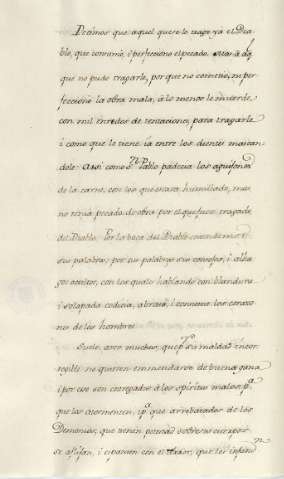 Dezimos que aquel que se le traga ya el Dia-
blo, que consumò, i perfecciono el pecado. mas à aq̃l
que no pudo tragarle, por que no cometiò, ni per-
fecciono la obra mala, à lo menos le muerde,
con mil enredos de tentaciones, para tragarle
i como que le tiene ia entre los dientes mascan-
dole. Assi como Sn Pablo padecia los aguijones
de la carne, con los que estava humillado, mas
no tenia pecado de obra por el que fuese tragado
del Diablo. Por la boca del Diablo entendemos
sus palabras; por sus palabras sus consejos, i alha-
gos ocultos, con los quales hablando con blandura
i solapada codicia, abrasa, i consume los corazo-
nes de los hombres.
Suele, ante muchos, que pr su maldad incor-
regible no quieren enmendarse de buena gana
i por esso son entregados à los spiritus malos pa
que los atormenten, pa que arrebatados de los
Demonios, que tienen potestad sobre sus cuerpos
se aflijan, i espanten con el terror, que les infun